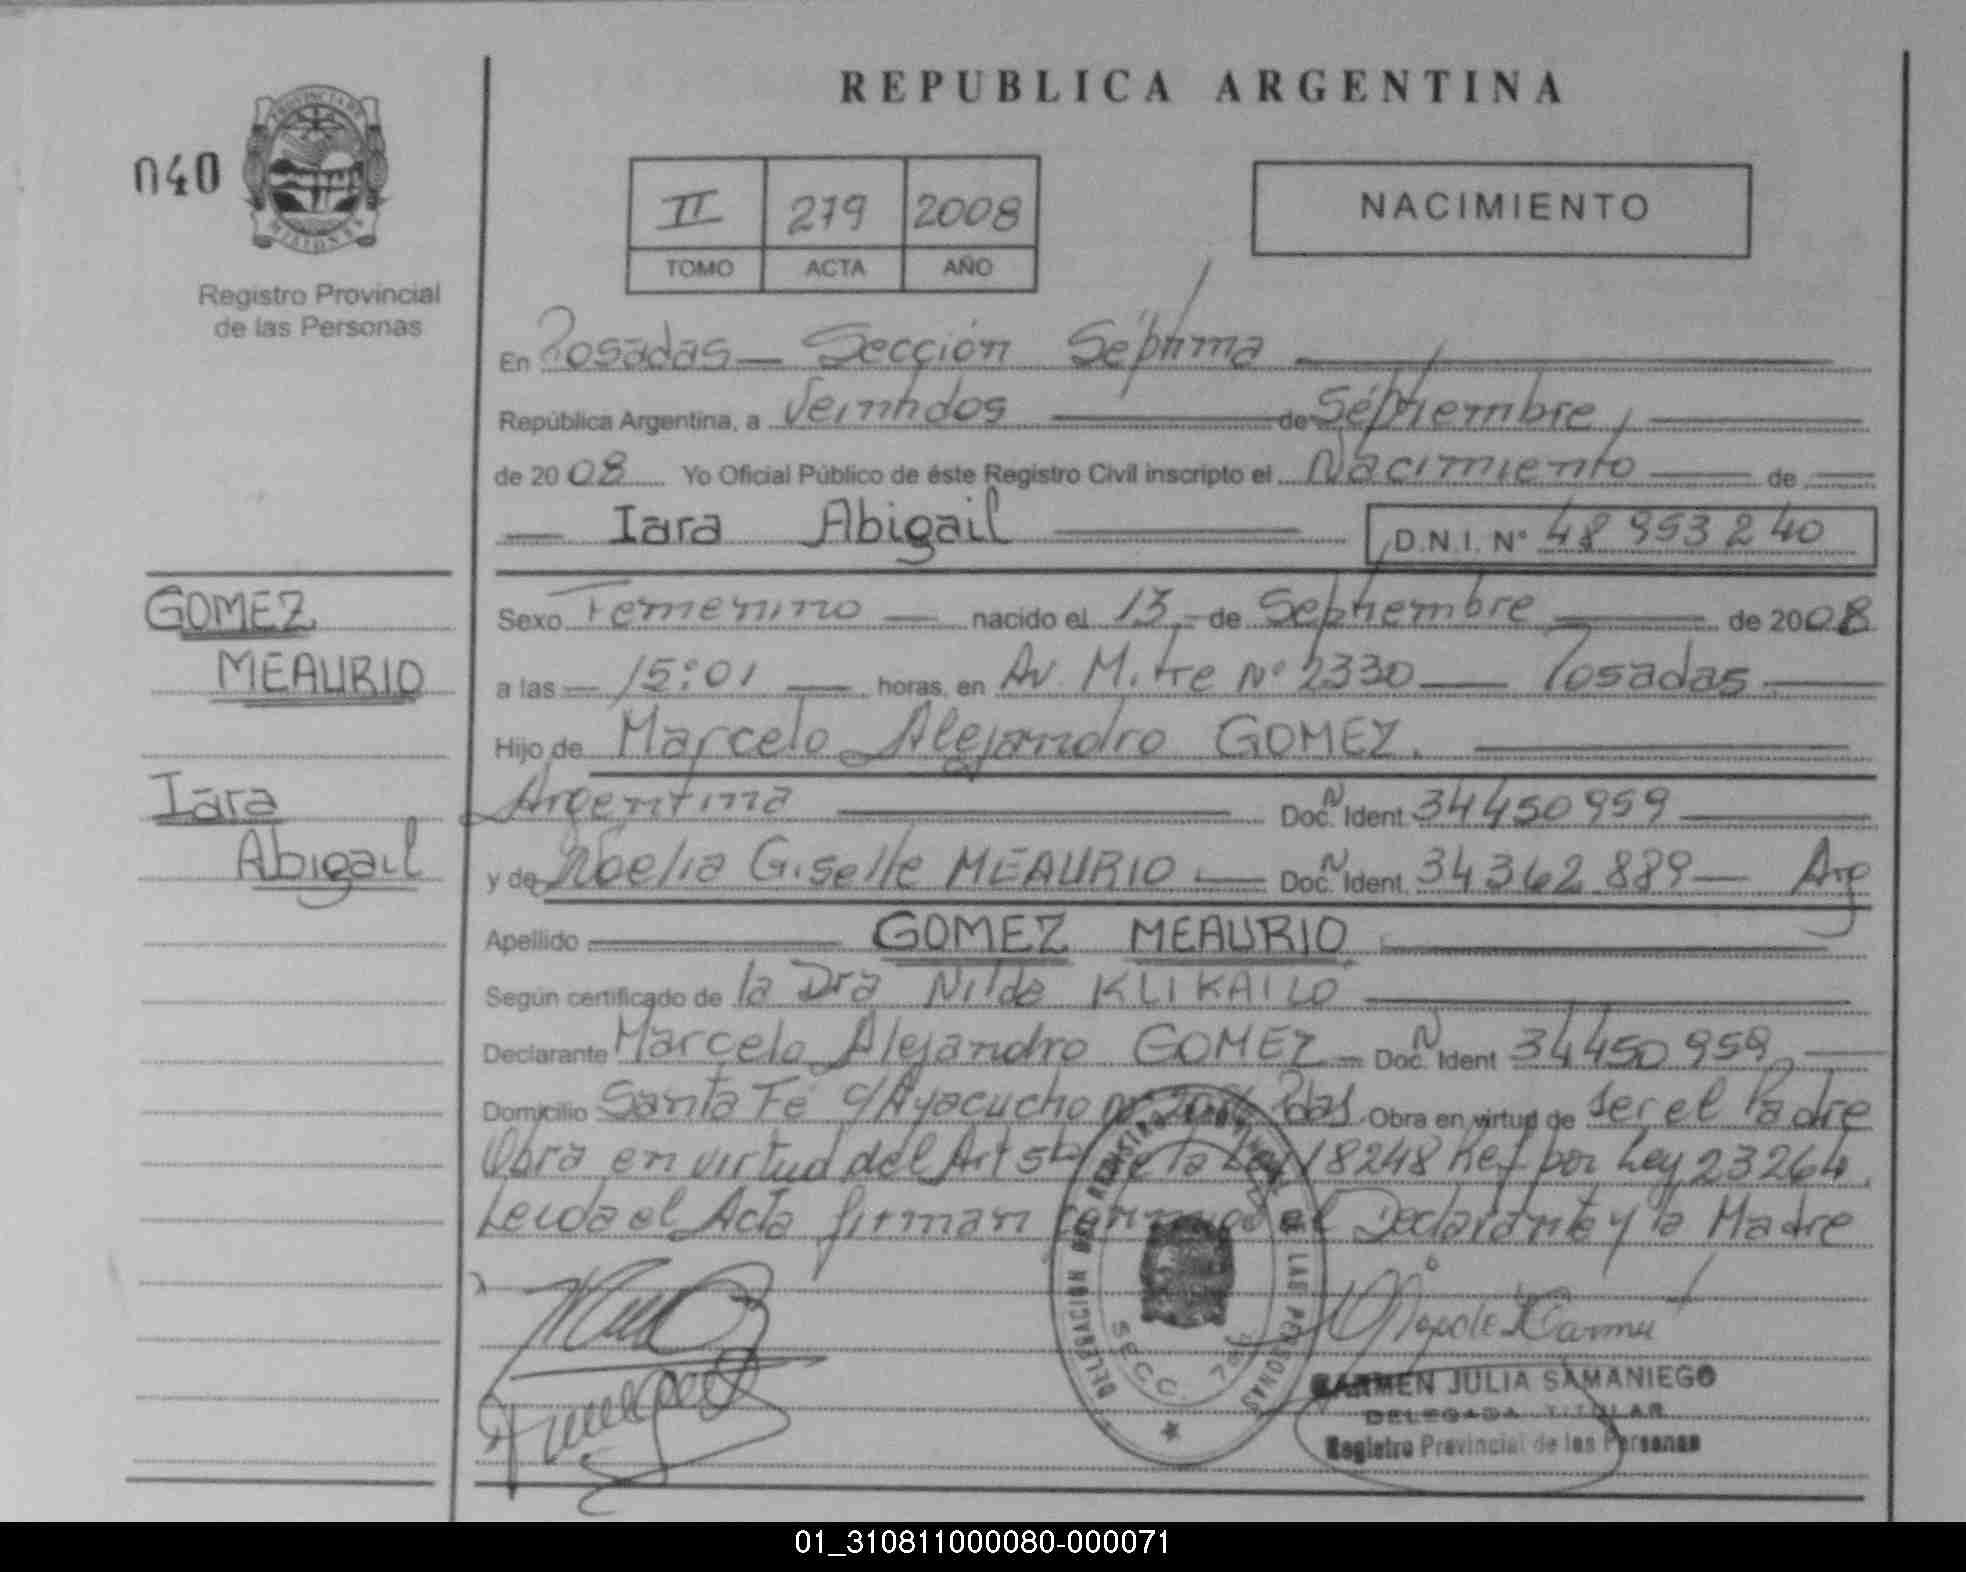 REPUBLICA ARGENTINA
040
PROVINCIA DE
MISIONES
Registro Provincial
de las Personas
II 279 2008
TOMO ACTA AÑO
NACIMIENTO
En Posadas — Sección Séptima
República Argentina, a Veintidos de Septiembre,
de 2008 Yo Oficial Público de éste Registro Civil inscripto el Nacimiento de
Iara Abigail D.N.I. N° 48 953 240
GOMEZ
MEAURIO
Iara
Abigail
Sexo Femenino — nacido el 13 - de Septiembre de 2008
a las — 15:01 — horas, en Av. Mitre N° 2330 — Posadas
Hijo de Marcelo Alejandro GOMEZ.
Argentina Doc. N Ident. 34450959
y de Noelia Giselle MEAURIO — Doc. N Ident. 34362 889 — Arg
Apellido GOMEZ MEAURIO
Según certificado de la Dra Nilda KLIKAILO
Declarante Marcelo Alejandro GOMEZ — Doc. N Ident 34450 959
Domicilio Santa Fé c/Ayacucho Pdas. Obra en virtud de ser el Padre
Obra en virtud del Art 5to de la Ley 18248 Ref por Ley 23264.
Leida el Acta firman conmigo el Declarante y la Madre
DELEGACION DEL REGISTRO PROVINCIAL DE LAS PERSONAS
SECC. 7a
CARMEN JULIA SAMANIEGO
DELEGADA TITULAR
Registro Provincial de las Personas
01_310811000080-000071